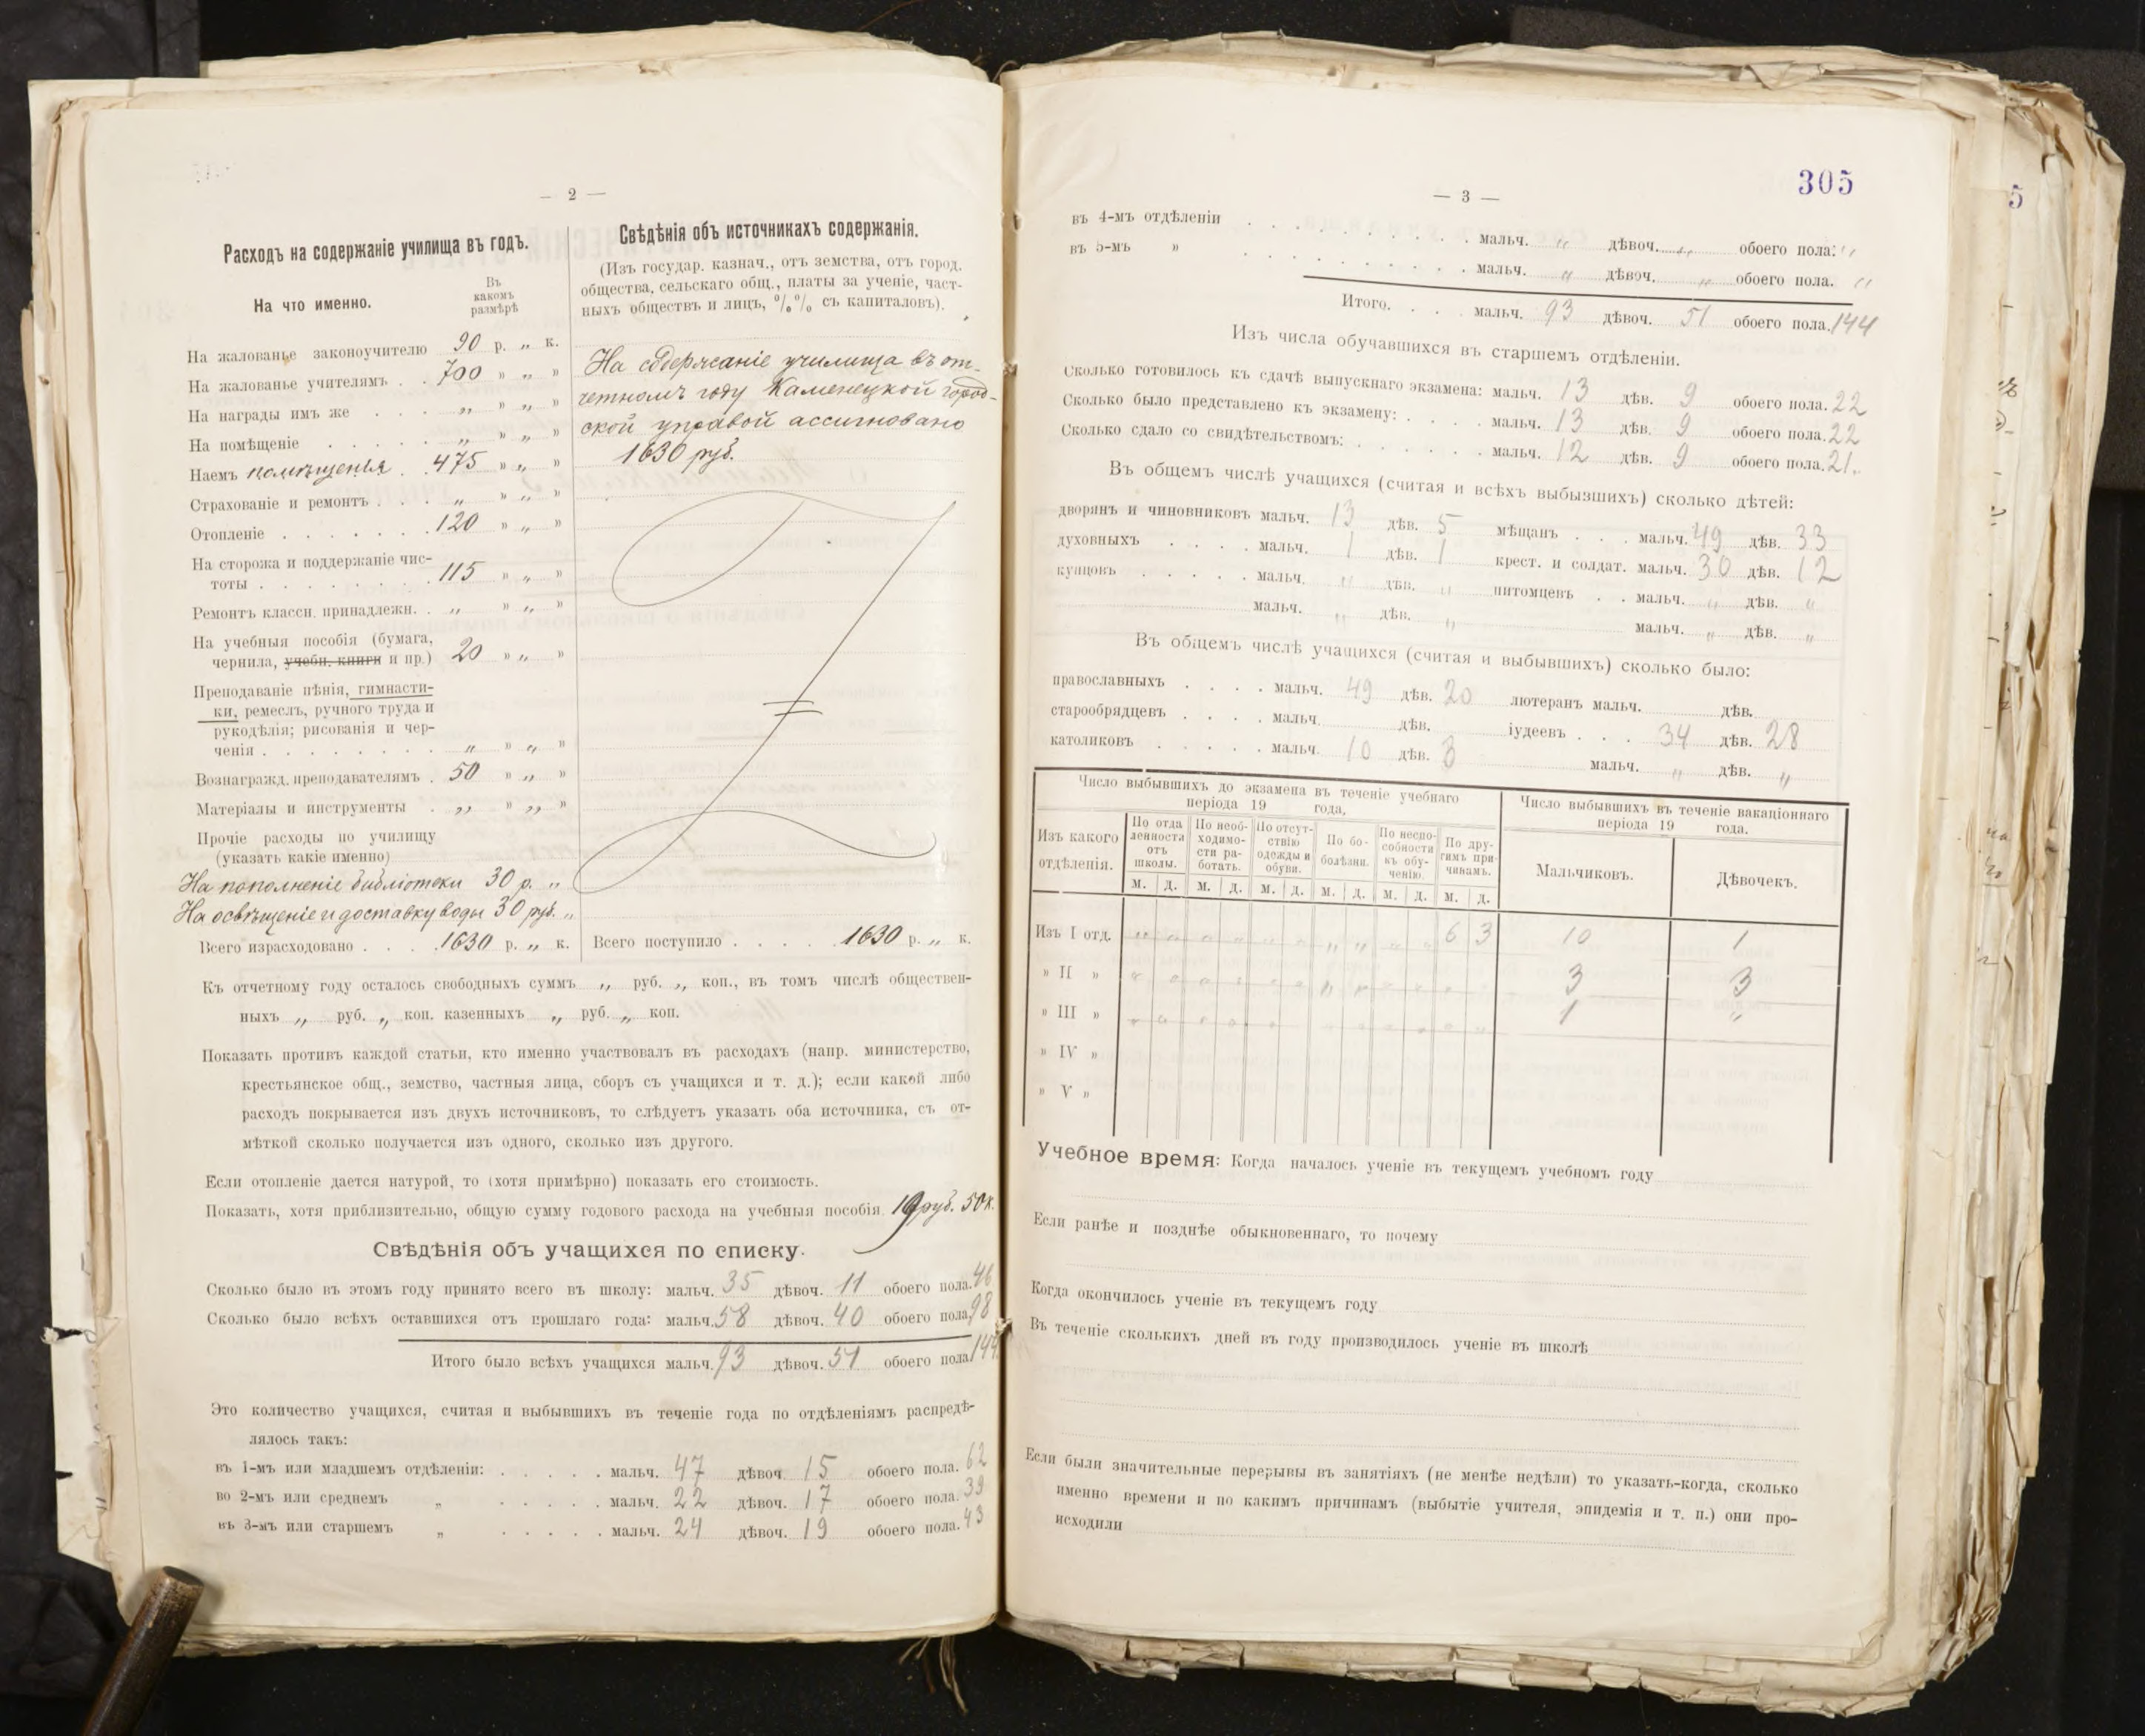 — 2 —
Расходъ на содержаніе училища въ годъ.
На что именно.
Въ какомъ размѣрѣ
На жалованье законоучителю 90 р. „ к.
На жалованье учителямъ . . 700 » „ »
На награды имъ же . . . „ » „ »
На помѣщеніе . . . . . „ » „ »
Наемъ помѣщенія . 475 » „ »
Страхованіе и ремонтъ . . . „ » „ »
Отопленіе . . . . . . . 120 » „ »
На сторожа и поддержаніе чис-
тоты . . . . . . . . 115 » „ »
Ремонтъ классн. принадлежн. . „ » „ »
На учебныя пособія (бумага,
чернила, учебн. книги и пр.) 20 » „ »
Преподаваніе пѣнія, гимнасти-
ки, ремеслъ, ручного труда и
рукодѣлія; рисованія и чер-
ченія . . . . . . . . „ » „ »
Вознагражд. преподавателямъ . 50 » „ »
Матеріалы и инструменты . „ » „ »
Прочіе расходы по училищу
(указать какіе именно)
На пополненіе библіотеки 30 р. „
На освѣщеніе и доставку воды 30 руб. „
Всего израсходовано . . . 1630 р. „ к.
Свѣдѣнія объ источникахъ содержанія.
(Изъ государ. казнач., отъ земства, отъ город.
общества, сельскаго общ., платы за ученіе, част-
ныхъ обществъ и лицъ, %% съ капиталовъ).
На содержаніе училища въ от-
четномъ году Каменецкой город-
ской управой ассигновано
1630 руб.
Всего поступило . . . . . 1630 р. „ к.
Къ отчетному году осталось свободныхъ суммъ „ руб. „ коп., въ томъ числѣ обществен-
ныхъ „ руб. „ коп. казенныхъ „ руб. „ коп.
Показать противъ каждой статьи, кто именно участвовалъ въ расходахъ (напр. министерство,
крестьянское общ., земство, частныя лица, сборъ съ учащихся и т. д.); если какой либо
расходъ покрывается изъ двухъ источниковъ, то слѣдуетъ указать оба источника, съ от-
мѣткой сколько получается изъ одного, сколько изъ другого.
Если отопленіе дается натурой, то (хотя примѣрно) показать его стоимость.
Показать, хотя приблизительно, общую сумму годового расхода на учебныя пособія. 19 руб. 50 к.
Свѣдѣнія объ учащихся по списку.
Сколько было въ этомъ году принято всего въ школу: мальч. 35 дѣвоч. 11 обоего пола. 46
Сколько было всѣхъ оставшихся отъ прошлаго года: мальч. 58 дѣвоч. 40 обоего пола. 98
Итого было всѣхъ учащихся мальч. 93 дѣвоч. 51 обоего пола 144
Это количество учащихся, считая и выбывшихъ въ теченіе года по отдѣленіямъ распредѣ-
лялось такъ:
въ 1-мъ или младшемъ отдѣленіи: . . . . . мальч. 47 дѣвоч. 15 обоего пола. 62
во 2-мъ или среднемъ „ . . . . . мальч. 22 дѣвоч. 17 обоего пола. 39
въ 3-мъ или старшемъ „ . . . . . мальч. 24 дѣвоч. 19 обоего пола. 43
— 3 —
305
въ 4-мъ отдѣленіи . . . . . мальч. „ дѣвоч. „ обоего пола. „
въ 5-мъ » . . . . . мальч. „ дѣвоч. „ обоего пола. „
Итого. . . . мальч. 93 дѣвоч. 51 обоего пола. 144
Изъ числа обучавшихся въ старшемъ отдѣленіи.
Сколько готовилось къ сдачѣ выпускнаго экзамена: мальч. 13 дѣв. 9 обоего пола. 22
Сколько было представлено къ экзамену: . . . . мальч. 13 дѣв. 9 обоего пола. 22
Сколько сдало со свидѣтельствомъ: . . . . . . мальч. 12 дѣв. 9 обоего пола. 21.
Въ общемъ числѣ учащихся (считая и всѣхъ выбызшихъ) сколько дѣтей:
дворянъ и чиновниковъ мальч. 13 дѣв. 5 мѣщанъ . . . мальч. 49 дѣв. 33
духовныхъ . . . . мальч. 1 дѣв. 1 крест. и солдат. мальч. 30 дѣв. 12
купцовъ . . . . . мальч. „ дѣв. „ питомцевъ . . мальч. „ дѣв. „
мальч. „ дѣв. „ мальч. „ дѣв. „
Въ общемъ числѣ учащихся (считая и выбывшихъ) сколько было:
православныхъ . . . . мальч. 49 дѣв. 20 лютеранъ мальч. дѣв.
старообрядцевъ . . . . мальч. дѣв. іудеевъ . . . 34 дѣв. 28
католиковъ . . . . . мальч. 10 дѣв. 3 мальч. „ дѣв. „
Число выбывшихъ до экзамена въ теченіе учебнаго
періода 19 года,
Число выбывшихъ въ теченіе вакаціоннаго
періода 19 года.
Изъ какого отдѣленія.
По отда ленности отъ школы.
По необ-ходимо-сти ра-ботать.
По отсут-ствію одежды и обуви.
По бо-болѣзни.
По неспо-собности къ обу-ченію.
По дру-гимъ при-чинамъ.
Мальчиковъ.
Дѣвочекъ.
м. д. м. д. м. д. м. д. м. д. м. д.
Изъ I отд. „ „ „ „ „ „ „ „ „ „ 6 3 10 1
» II » „ „ „ „ „ „ „ „ „ „ „ „ 3 3
» III » „ „ „ „ „ „ „ „ „ „ „ „ 1 „
» IV »
» V »
Учебное время: Когда началось ученіе въ текущемъ учебномъ году
Если ранѣе и позднѣе обыкновеннаго, то почему
Когда окончилось ученіе въ текущемъ году
Въ теченіе сколькихъ дней въ году производилось ученіе въ школѣ
Если были значительные перерывы въ занятіяхъ (не менѣе недѣли) то указать-когда, сколько
именно времени и по какимъ причинамъ (выбытіе учителя, эпидемія и т. п.) они про-
исходили
5